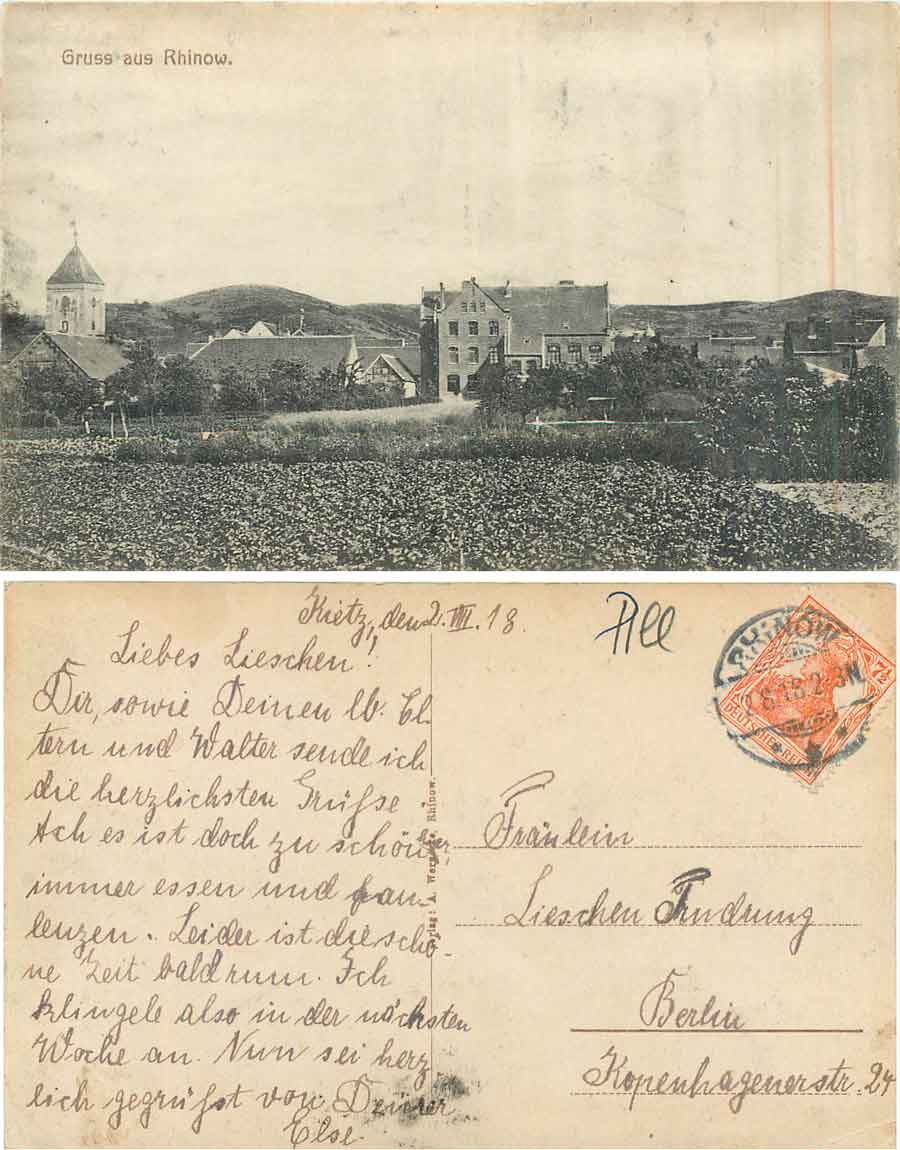 Gruss aus Rhinow.
Kietz, den 2. VIII. 18.
Liebes Lieschen!
Dir, sowie Deinen lb. El-
tern und Walter sende ich
die herzlichsten Grüße.
Ach es ist doch zu schön
immer essen und faul
lenzen. Leider ist die schö-
ne Zeit bald rum. Ich
klingele also in der nächsten
Woche an. Nun sei herz
lich gegrüßt von Deiner
Else.
Rhinow.
RHINOW
2.8.18.2-3N.
DEUTSCHES REICH
7½
Fräulein
Lieschen
Berlin
Kopenhagenerstr. 24